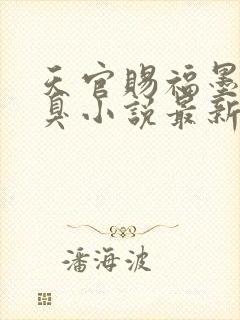 天官赐福墨
臭小说最新
潘海波